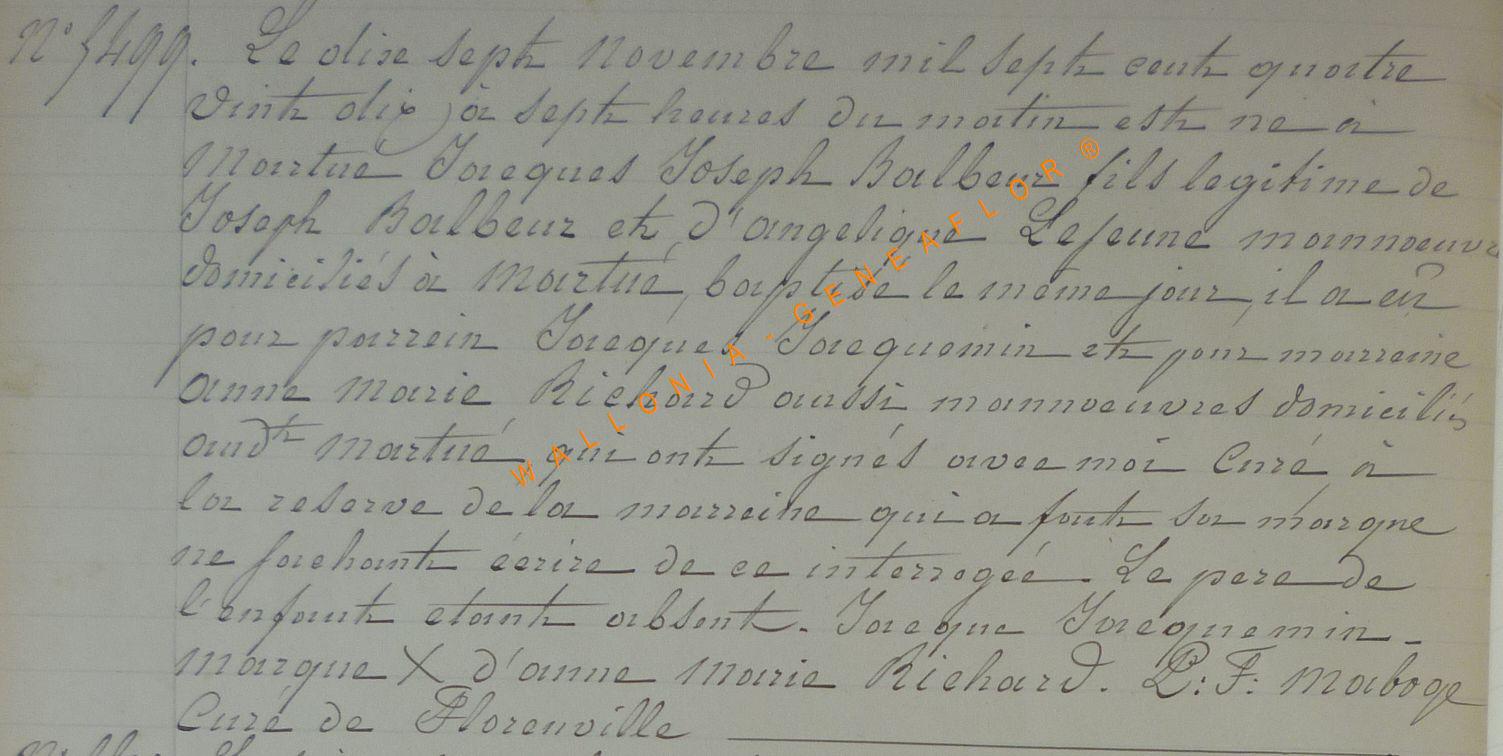 N° 1499. Le dixe sept Novembre mil sept cent quatre
vint dix, à sept heures du matin est né à
Martué Jacques Joseph Balbeur fils legitime de
Joseph Balbeur et d'angelique Lejeune mannoeuvre
domiciliés à Martué, baptisé le même jour, il a eû
pour parrein Jacques Jacquemin et pour marreine
anne marie Richard aussi mannoeuvres domiciliés
audt Martué qui ont signés avec moi Curé à
la reserve de la marreine qui a fait sa marque
ne sachant écrire de ce interrogée. Le pere de
l'enfant etant absent. Jacque Jacquemin.
marque X d'anne Marie Richard. P: F: Maboge
Curé de Florenville
WALLONIA - GENEAFLOR ®